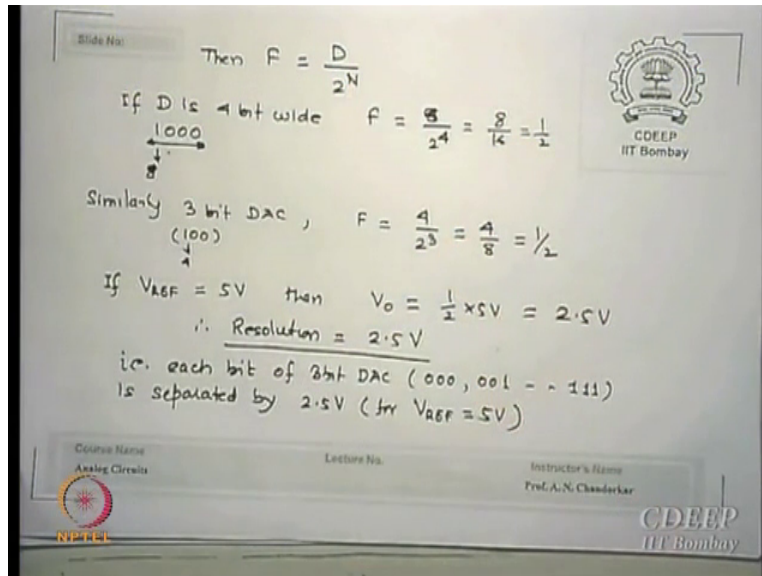 Slide No:
Then F = D / 2^N
If D is 4 bit wide F = 8 / 2^4 = 8 / 16 = 1 / 2
1000
8
CDEEP
IIT Bombay
Similarly 3 bit DAC , F = 4 / 2^3 = 4 / 8 = 1/2
(100)
4
If VREF = 5V then Vo = 1/2 x5V = 2.5V
∴ Resolution = 2.5V
i.e. each bit of 3bit DAC (000, 001 - - 111)
is separated by 2.5V (for VREF = 5V)
Course Name
Analog Circuits
Lecture No.
Instructor's Name
Prof. A. N. Chandorkar
NPTEL
CDEEP
IIT Bombay